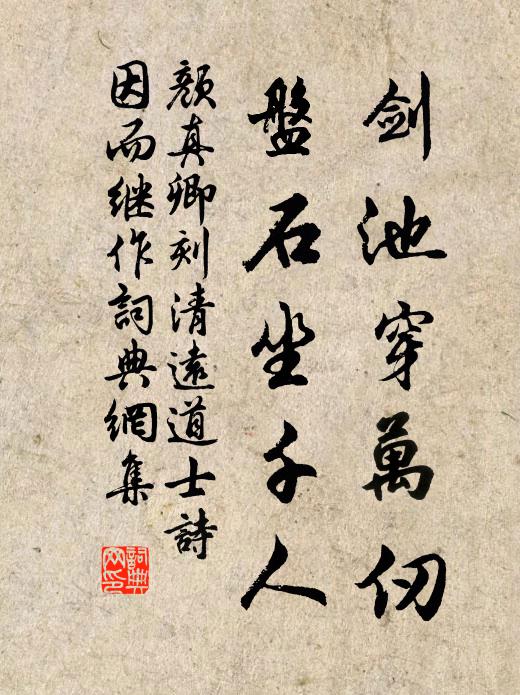 剑池穿萬仞
盤石坐千人
顏真卿刻清遠道士詩
因而继作詞典網集
詞典
网印